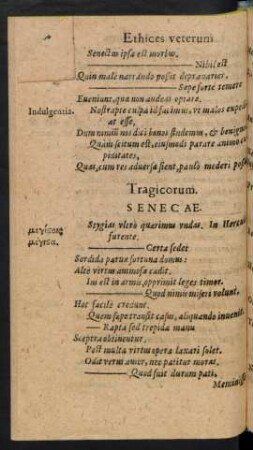 Ethices veterum
Senectus ipsa est morbus.
Nihil est
Quin male narrando possit deprauarier.
Sepe forte temere
Eueniunt, quæ non audeas optare.
Indulgentia.
Nostrapte culpa id facimus, ut malos expediat esse.
Dum nimium nos dici bonos studemus, & benignos
Quam scitum est, eiusmodi parare animo
Quas, cum res aduersæ sient, paulo mederi possis
Tragicorum.
SENECAE.
Stygias ultro quærimus undas. In Hercule
furente.
Certa sedet
Sordida paruæ fortuna domus:
Alte virtus animosa cadit.
Ius est in armis, opprimit leges timor.
Quod nimis miseri volunt,
Hoc facile credunt.
Quem sæpe transit casus, aliquando inuenit.
Rapta sed trepida manu
Sceptra obtinentur.
Post multa virtus opera laxari solet.
Odit verus amor, nec patitur moras.
Quod fuit durum pati,
Meminisse